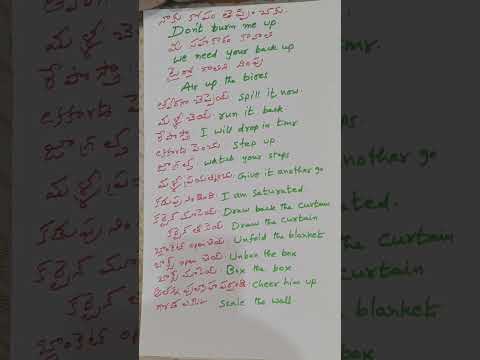 నాకు కోపం తెప్పించకు
Don't burn me up
మీ సహకారం కావాలి
we need your back up
టైర్లో గాలిని నింపు
Air up the tires
త్వరగా చెప్పెయ్ spill it now.
మళ్ళీ చెయ్ run it back
రేపొస్తా I will drop in tmr.
efforts పెంచు step up.
జాగ్రత్త watch your steps
మళ్ళీ ప్రయత్నించు Give it another go
కడుపు నిండింది I am saturated.
కర్టైన్ మూసెయ్ Draw back the curtain
కర్టైన్ తీసెయ్ Draw the curtain
బ్లాంకెట్ open చెయ్ Unfold the blanket
బాక్స్ open చెయ్ Unbox the box
బాక్స్ మూసెయ్ Box the box
cheer him up
గోడ ఎక్కు Scale the wall